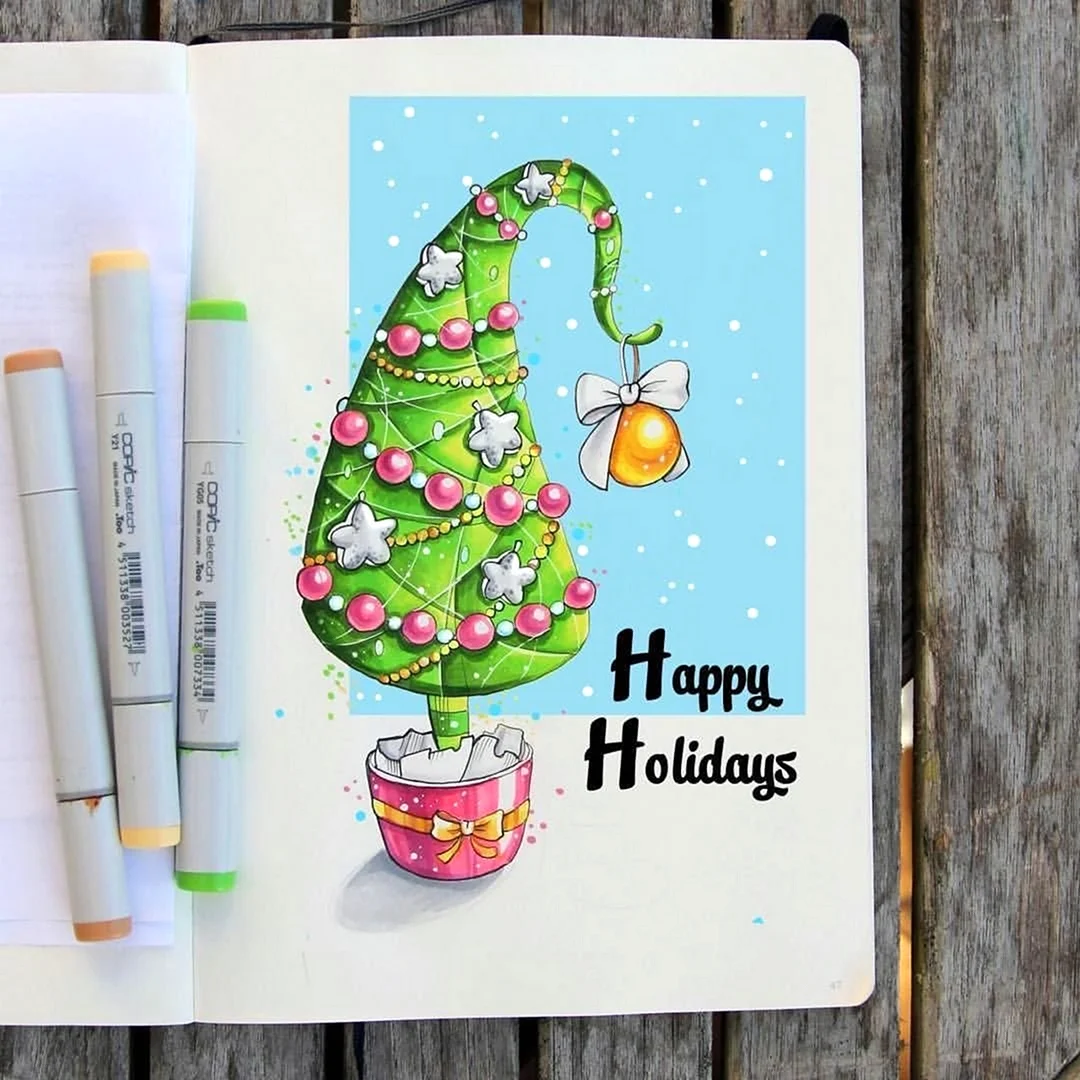 Happy
Holidays
COPIC sketch
Y21 MADE IN JAPAN .Too 4 511338 003527
COPIC sketch
YG05 MADE IN JAPAN .Too 4 511338 007334
47